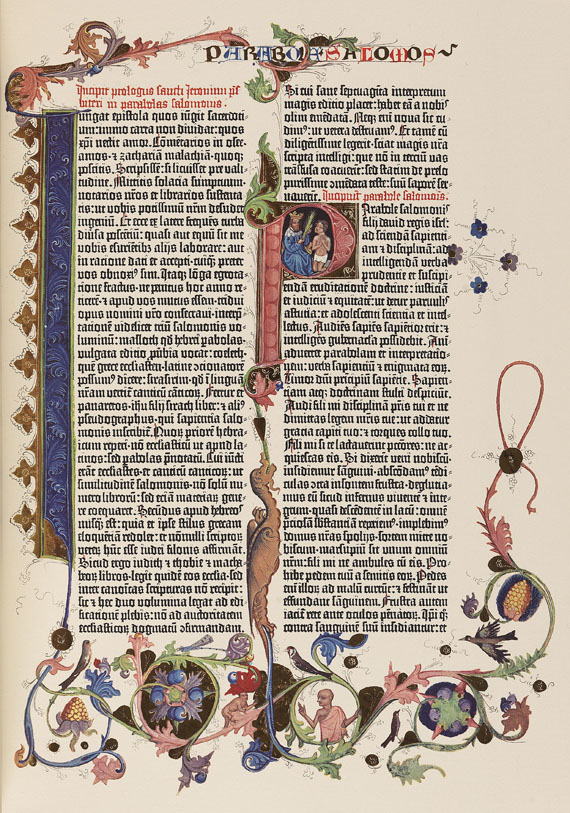 PARABOLE SALOMOIS
Incipit prologus sancti Jeronimi
in parabolas salomonis.
Iungat epistola quos iungit sacerdoti-
um: immo carta non dividat: quos
xpi nectit amor. Cōmētarios in osee-
amos ⁊ zachariam malachiā quoqȝ
poscitis. Scripsissē: si licuisset pre vali-
tudine. Mittitis solacia sumptuum
notarios nr̄os et librarios sustenta-
tis: ut vobis potissimū nr̄m desudet
ingeniū. Et ecce ex latere frequēs turba
diversa poscētiū: quasi aut equū sit me
vobis esurietibȝ alijs laborare: aut
in ratione dati et accepti cuiqȝ preter
vos obnoxiꝰ sim. Itaqȝ lōga egrota-
tione fractus ne penitus hoc anno re-
ticerē ⁊ apud vos mutus essem tridui
opus nomini vr̄o consecravi interp̄-
tationē videlicet triū salomonis vo-
luminū: masloth qd̄ hebrei pabolas
vulgata editio pūbia vocat: coeleth
que grece eccliasten latine cōcionatorē
possumꝰ dicere: sirasirim qd̄ ī linguā
nr̄am vertit̄ canticū cāticoȝ. Fertur et
panaretos ihu filij sirach liber: ⁊ aliꝰ
pseudographus qui sapientia salo-
monis inscribit̄. Quoȝ priorē hebra-
icum repperi nō ecclīasticū ut apud la-
tinos: sed pabolas p̄notatū. Cui iūcti
erāt ecclīastes et canticū canticoȝ: ut
similitudinē salomonis nō solū nu-
mero libroru: sed etiā materiaȝ gene-
re coequaret. Secūdus apud hebreos
nusqȝ est: quia et ipse stilus grecam
eloquētiā redolet: et nōnulli scriptoȝ
veteȝ hūc esse iudei filonis affirmāt.
Sicud ergo iudith ⁊ thobie ⁊ macha-
beoȝ libros legit quidē eos ecclīa sed
inter canoicas scripturas nō recipit:
sic ⁊ hec duo volumina legat ad edi-
ficationē plebis: nō ad auctoritatem
ecclīasticoȝ dogmatū ɔfirmandam.
Si cui sane septuaginta interpretum
magis editio placet: habet eā a nobis
olim emēdatā. Neqȝ em̄ nova sic cu-
dimꝰ: ut vetera destruamꝰ. Et tamē cū
diligētissime legerit: sciat magis nr̄a
scripta intelligi: que nō in terciū vas
trāsfusa coacuerīt: sed statim de prelo
purissime ɔmēdata teste: suū saporē ser-
vaverīt. Incipiūt parabole salomonis.
Parabole salomonis
filij david regis isrl̄:
ad sciendā sapienti-
am ⁊ disciplinā: ad
intelligendā verba
prudentie et suscipi-
endā eruditationē doctrine: iusticiā
et iudiciū ⁊ equitatē: ut detur parvulis
astutia: et adolescenti scientia et intel-
lectus. Audiēs sapiēs sapiētior erit: ⁊
intelligēs gubernacla possidebit. Ani-
advertet parabolam et interpretatio-
nem: verba sapientiū ⁊ enigmata eoȝ.
Timor dn̄i principiū sapiētie. Sapien-
tiam atqȝ doctrinam stulti despiciūt.
Audi fili mi disciplinā pr̄is tui et ne
dimittas legem mr̄is tue: ut addatur
gracia capiti tuo: ⁊ torques collo tuo.
Fili mi si te lactaverint pctōres: ne ac-
quiescas eis. Si dixerīt veni nobiscū-
insidiemur sāguini· abscōdamꝰ tēdi-
culas ɔtra insontem frustra· deglutia-
mus eū sicud infernus viventē ⁊ inte-
grum· quasi descēdētē in lacū: omnē
p̄ciosā substātiā repperiemꝰ· implebimꝰ
domus nr̄as spolijs· sortem mitte no-
biscum· marsupiū sit unum omniū
nr̄m: fili mi ne ambules cū eis. Pro-
hibe pedem tuū a semitis eoȝ. Pedes
em̄ illoȝ ad malū currūt: ⁊ festināt ut
effundant sāguinem. Frustra autem
iacit̄ rete ante oculos pēnatoȝ. Ipi qȝ
contra sanguinē suū insidiantur: et